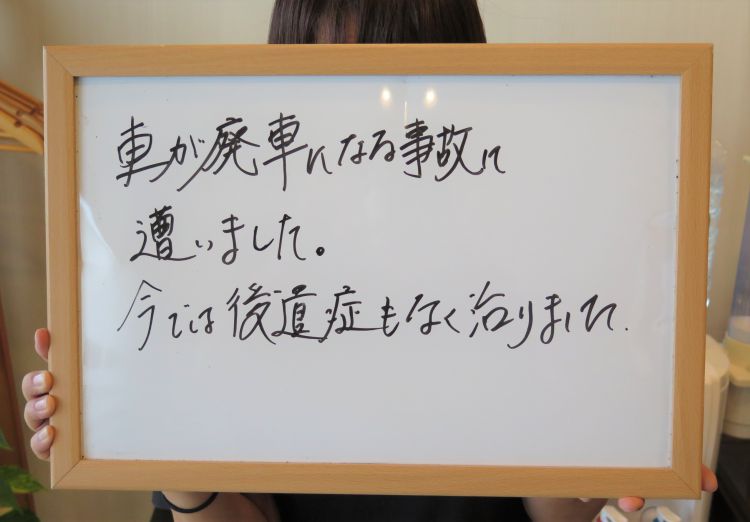 車が廃車になる事故に
遭いました。
今では後遺症もなく治りました.